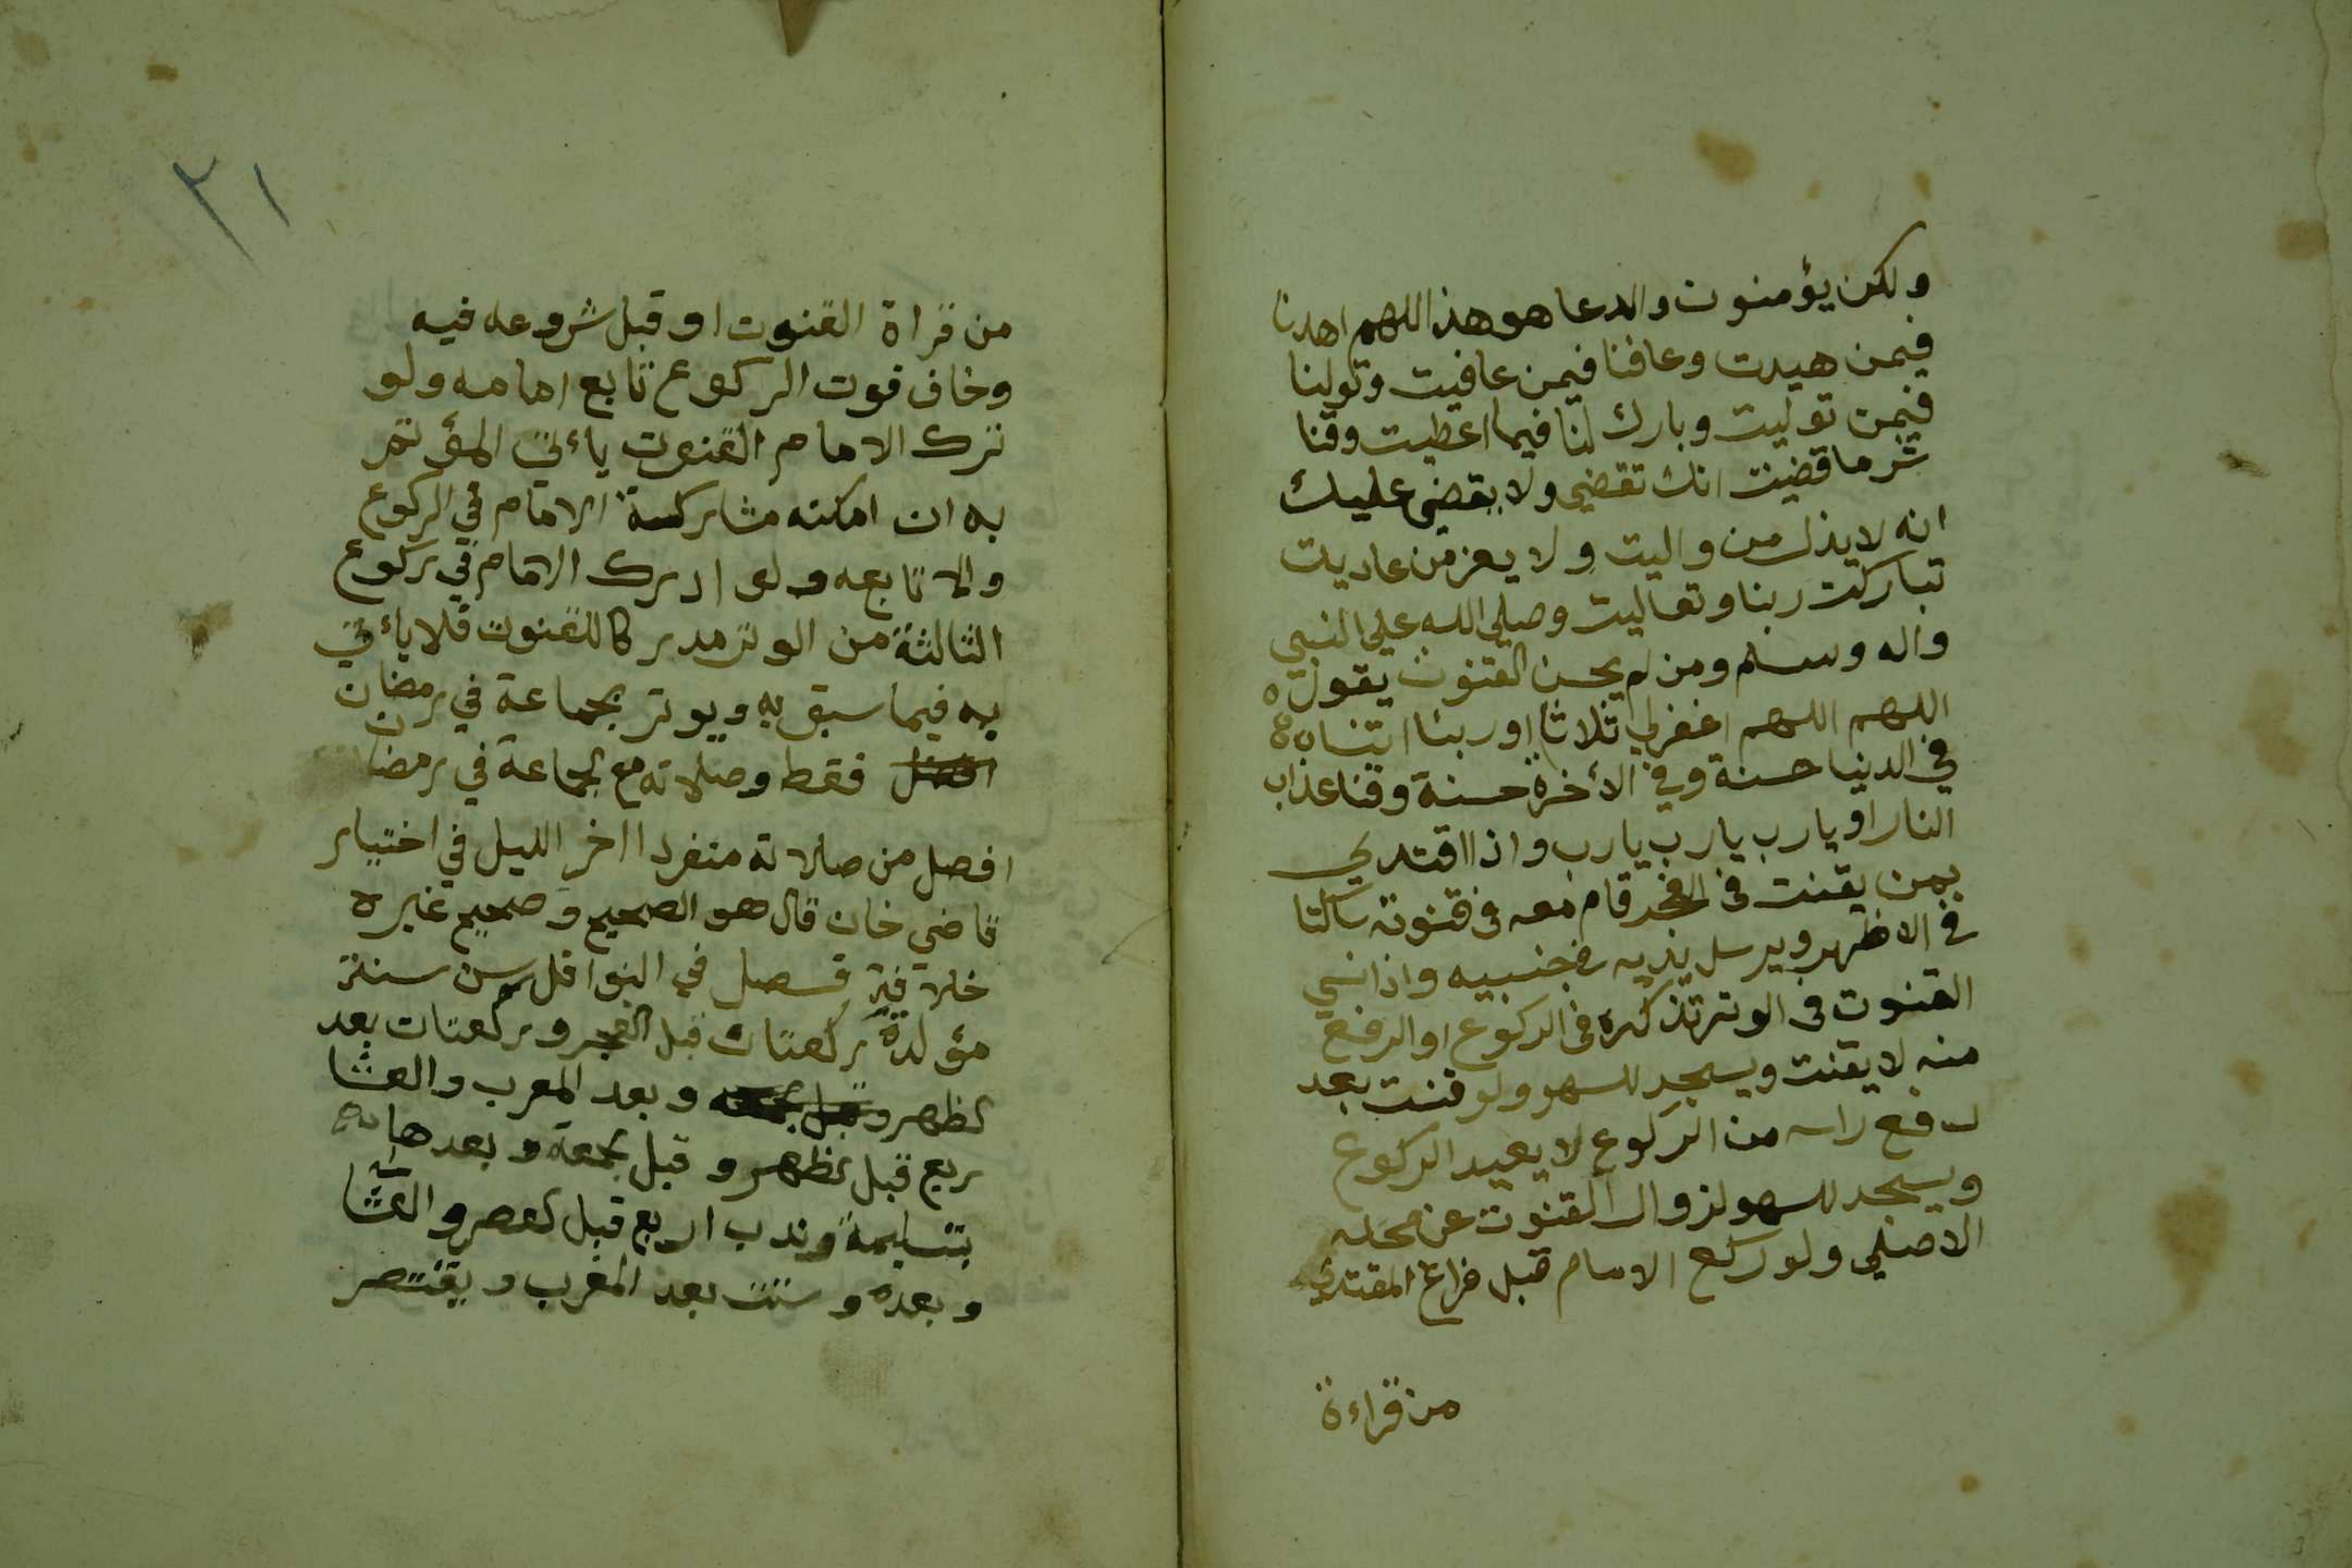 ولكن يؤمنون والدعا هو هذا اللهم اهدنا
فيمن هيدت وعافنا فيمن عافيت وتولنا
فيمن توليت وبارك لنا فيما اعطيت وقنا
شر ما قضيت انك تقضي ولا يقضى عليك
انه لا يذل من واليت ولا يعز من عاديت
تباركت ربنا وتعاليت وصلي الله علي النبي
واله وسلم ومن لم يحسن القنوت يقول
اللهم اللهم اغفرلي ثلاثا او ربنا اتنا
في الدنيا حسنة وفي الأخرة حسنة وقنا عذاب
النار او يارب يارب يارب واذا اقتدي
بمن يقنت في الفجر قام معه في قنوته ساكتا
في الاظهر ويرسل يديه في جنبيه واذا نسي
القنوت في الوتر تذكره في الركوع او الرفع
منه لا يقنت ويسجد للسهو ولو قنت بعد
رفع راسه من الركوع لا يعيد الركوع
ويسجد للسهو لزوال القنوت عن محله
الاصلي ولو ركع الامام قبل فراغ المقتدي
من قراءة
٣١
من قراة القنوت او قبل شروعه فيه
وخاف فوت الركوع تابع امامه ولو
ترك الامام القنوت يأتي المؤتم
به ان امكنه مشاركة الامام في الركوع
والا تابعه ولو ادرك الامام في ركوع
الثالثة من الوتر مدركا للقنوت فلا يأتي
به فيما سبق به ويوتر بجماعة في رمضان
افضل فقط وصلاته مع الجماعة في رمضان
افصل من صلاته منفردا اخر الليل في اختيار
قاضي خان قال هو الصحيح وصحيح غيره
خلافه فصل في النوافل سن سنة
مؤكدة ركعتان قبل الفجر وركعتان بعد
الظهر وقبل الجمعة وبعد المغرب والعشا
اربع قبل الظهر وقبل الجمعة وبعدها
بتسليمة وندب اربع قبل العصر والعشا
وبعده وست بعد المغرب ويقتصر